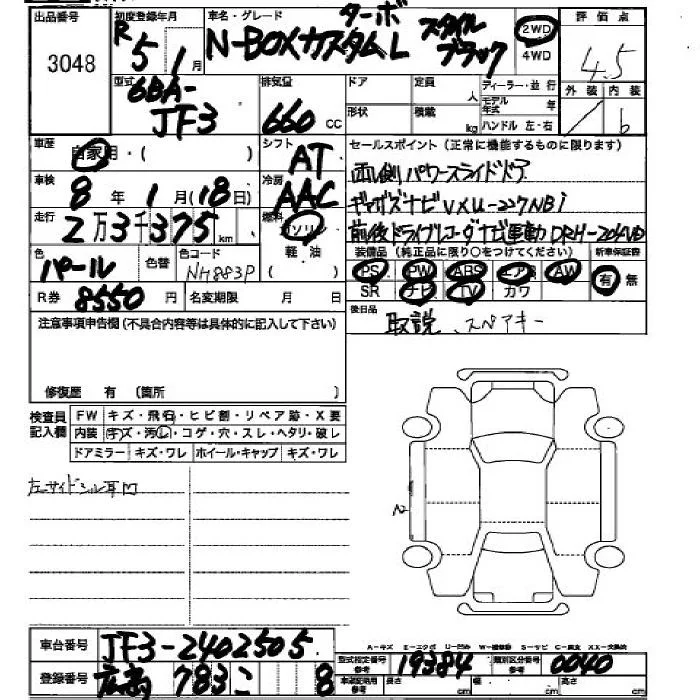 出品番号 初度登録年月 車名・グレード 評価点
3048 R5 1月 N-BOXカスタムL ターボ スタイル ブラック 2WD 4WD 4.5
型式 排気量 ドア 定員 人 ディーラー・並行 外装 内装
6BA-JF3 660cc 形状 積載 kg モデル年式 年 ハンドル 左・右 b
車歴 自家用・( ) シフト AT セールスポイント(正常に機能するものに限ります)
車検 8年1月(18日) 冷房 AAC 両側パワースライドドア
走行 2万3千375km 燃料 ガソリン ギャザズナビVXU-227NBi
軽油 前後ドライブレコーダ ナビ連動
色 パール 色替 色コード NH883P 装備品(純正品に限り○をつけてください) 新車保証書
PS PW ABS エアB AW 有 無
R券 8550円 名変期限 月 日 SR ナビ TV カワ
注意事項申告欄(不具合内容等は具体的に記入して下さい) 後日品
取説、スペアキー
修復歴 有 (箇所 )
検査員記入欄 FW キズ・飛石・ヒビ割・リペア跡・X要
内装 キズ・汚レ・コゲ・穴・スレ・ヘタリ・破レ
ドアミラー キズ・ワレ ホイール・キャップ キズ・ワレ
左サイドシル耳凹
A-キズ E-エクボ U-凹み W-補修跡 S-サビ C-腐食 XX-交換済
車台番号 JF3-2402505
登録番号 広島 783 こ 8 型式指定番号 参考 19384 類別区分番号 参考 0040
車庫証明用 参考 長さ cm 幅 cm 高さ cm